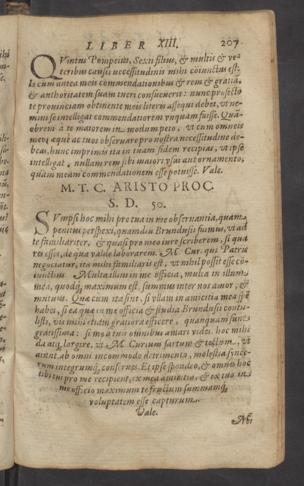 LIBER XIII. 207
QVintus Pompeius, Sexti filius, & multis & ve-
teribus causis necessitudinis mihi coiunctus est.
Is cum antea meis commendationibus & rem & gratiā,
& authoritatem suam tueri consueuerit: nunc profecto
te prouinciam obtinente meis literis assequi debet, vt ne-
mini se intelligat commendatiorem vnquam fuisse. Quā-
obrem à te maiorem in modum peto, vt cum omneis
meos aeque ac tuos obseruare pro nostra necessitudine de-
beas, hunc inprimis ita in tuam fidem recipias, vt ipse
intelligat, nullam rem sibi maiori vsui aut ornamento,
quàm meam commendationem esse potuisse. Vale.
M. T. C. ARISTO PROC.
S. D. 50.
SVmpsi hoc mihi pro tua in me obseruantia, quam
penitus perspexi, quamdiu Brundusii fuimus, vt ad
te familiariter, & quasi pro meo iure scriberem, si qua
res esset, de qua valde laborarem. M. Cur. qui Patris
negociatur, ita mihi familiaris est, vt nihil possit esse cō-
iunctius. Multa illius in me officia, multa in illum
mea, quodq; maximum est, summus inter nos amor, &
mutuus. Quae cum ita sint. si vllam in amicitia mea spē
habes, si ea quae in me officia & studia Brundusii contu-
listi, vis mihi etiam gratiora efficere, quanquam sunt
gratissima: si me à tuis omnibus amari vides. hoc mihi
da atq; largire. vt M. Curium sartum & tectum, vt
aiunt, ab omni incommodo detrimento, molestia since-
rum integrumq; conserues. Et ipse spondeo, & omnes hoc
tibi tui pro me recipient, ex mea amicitia, & ex tuo in
me officio maximum te fructum summamq;
voluptatem esse capturum.
Vale.